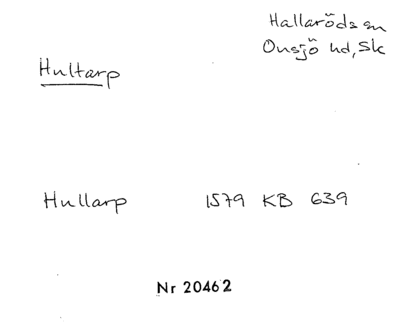 Hallaröds sn
Onsjö hd, Sk
Hultarp
Hullarp 1579 KB 639
Nr 20462